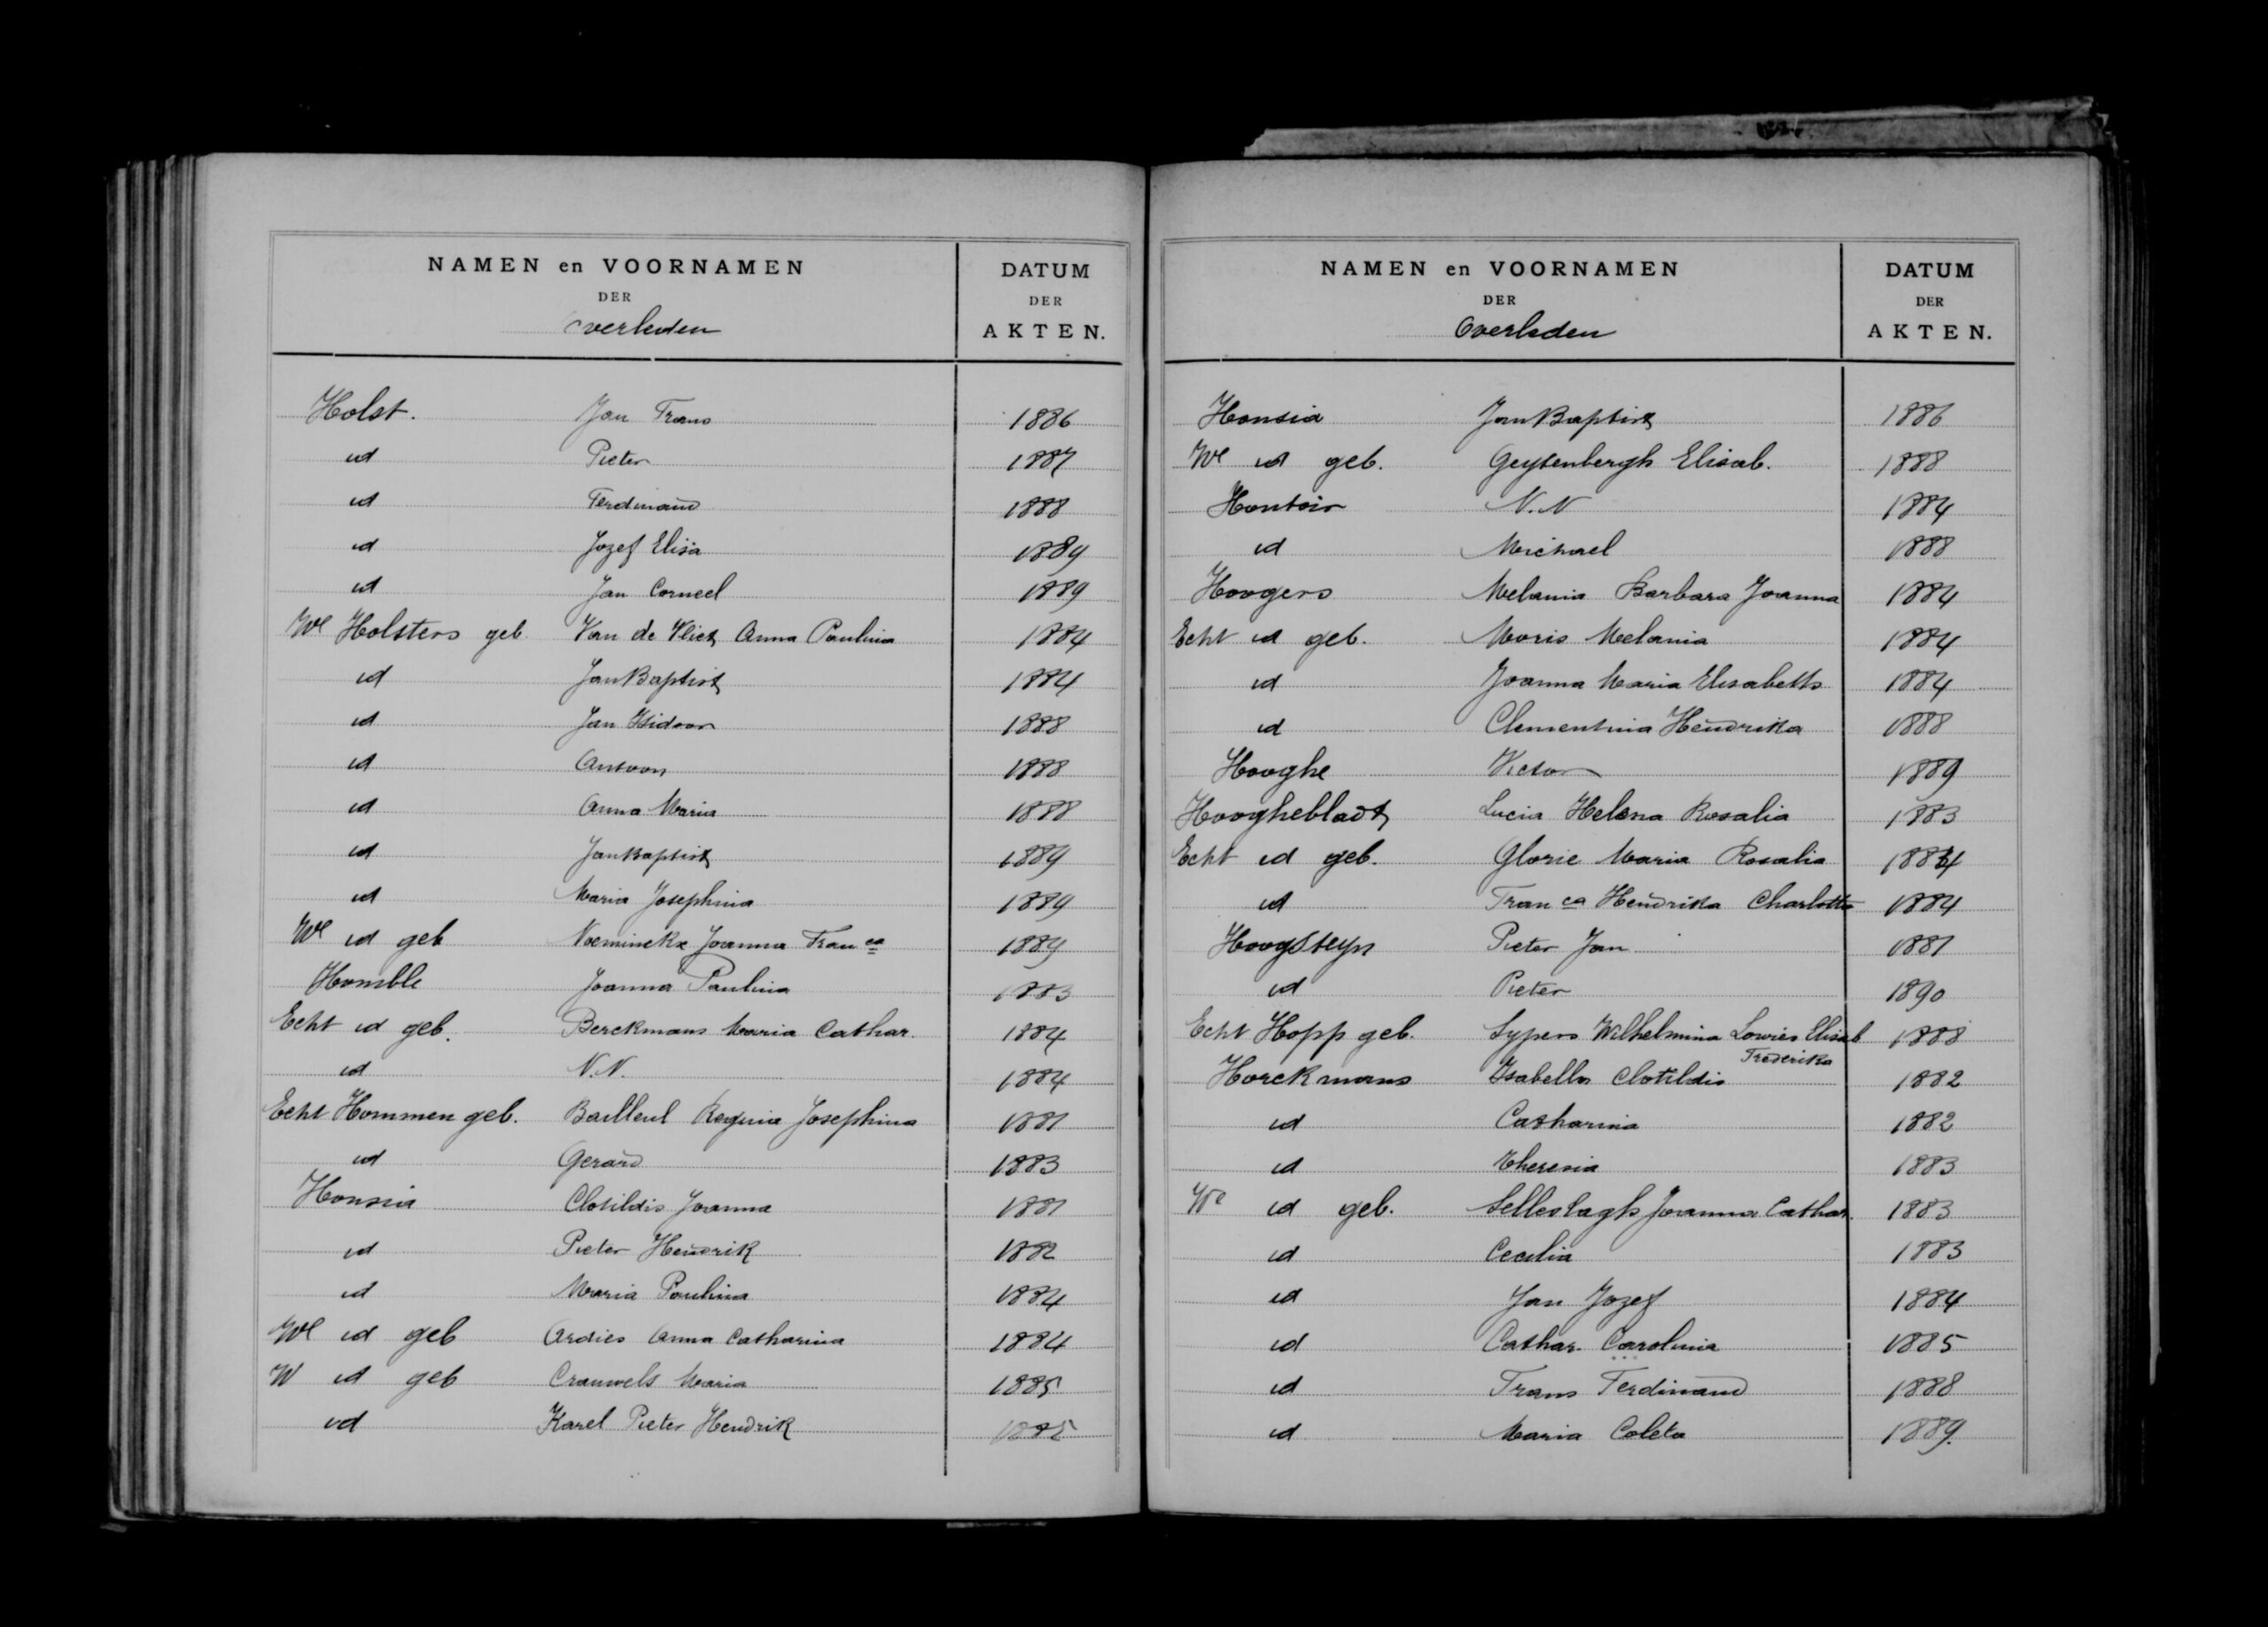 NAMEN en VOORNAMEN
DER
Overleden
DATUM
DER
AKTEN.
Holst. Jan Frans 1886
id Pieter 1887
id Ferdinand 1888
id Jozef Elisa 1889
id Jan Corneel 1889
We Holsters geb Van de Vliet Anna Paulina 1884
id Jan Baptist 1884
id Jan Isidoor 1888
id Antoon 1888
id Anna Maria 1888
id Jan Baptist 1889
id Maria Josephina 1889
We id geb Joanna Franca 1889
Homble Joanna Paulina 1883
Echt id geb. Berckmans Maria Cathar. 1884
id N.N. 1884
Echt Hommen geb. Bailleul Regina Josephina 1881
id Gerard 1883
Honsia Clotildis Joanna 1881
id Pieter Hendrik 1882
id Maria Paulina 1884
We id geb Ardies Anna Catharina 1884
W id geb Crauwels Maria 1885
id Karel Pieter Hendrik 1885
NAMEN en VOORNAMEN
DER
Overleden
DATUM
DER
AKTEN.
Honsia Jan Baptist 1886
We id geb. Geysenbergh Elisab. 1888
Hontoir N.N 1884
id Michael 1888
Hoogers Melania Barbara Joanna 1884
Echt id geb. Moris Melania 1884
id Joanna Maria Elisabeth 1884
id Clementina Hendrika 1888
Hooghe Victor 1889
Hooghebladt Lucia Helena Rosalia 1883
Echt id geb. Glorie Maria Rosalia 1884
id Franca Hendrika Charlotta 1884
Hoogsteyn Pieter Jan 1881
id Pieter 1890
Echt Hopp geb. Sypers Wilhelmina Lowies Elisab 1888
Frederika
Horckmans Isabella Clotildis 1882
id Catharina 1882
id Theresia 1883
We id geb. Selleslagh Joanna Cathar. 1883
id Cecilia 1883
id Jan Jozef 1884
id Cathar. Carolina 1885
id Frans Ferdinand 1888
id Maria Coleta 1889.